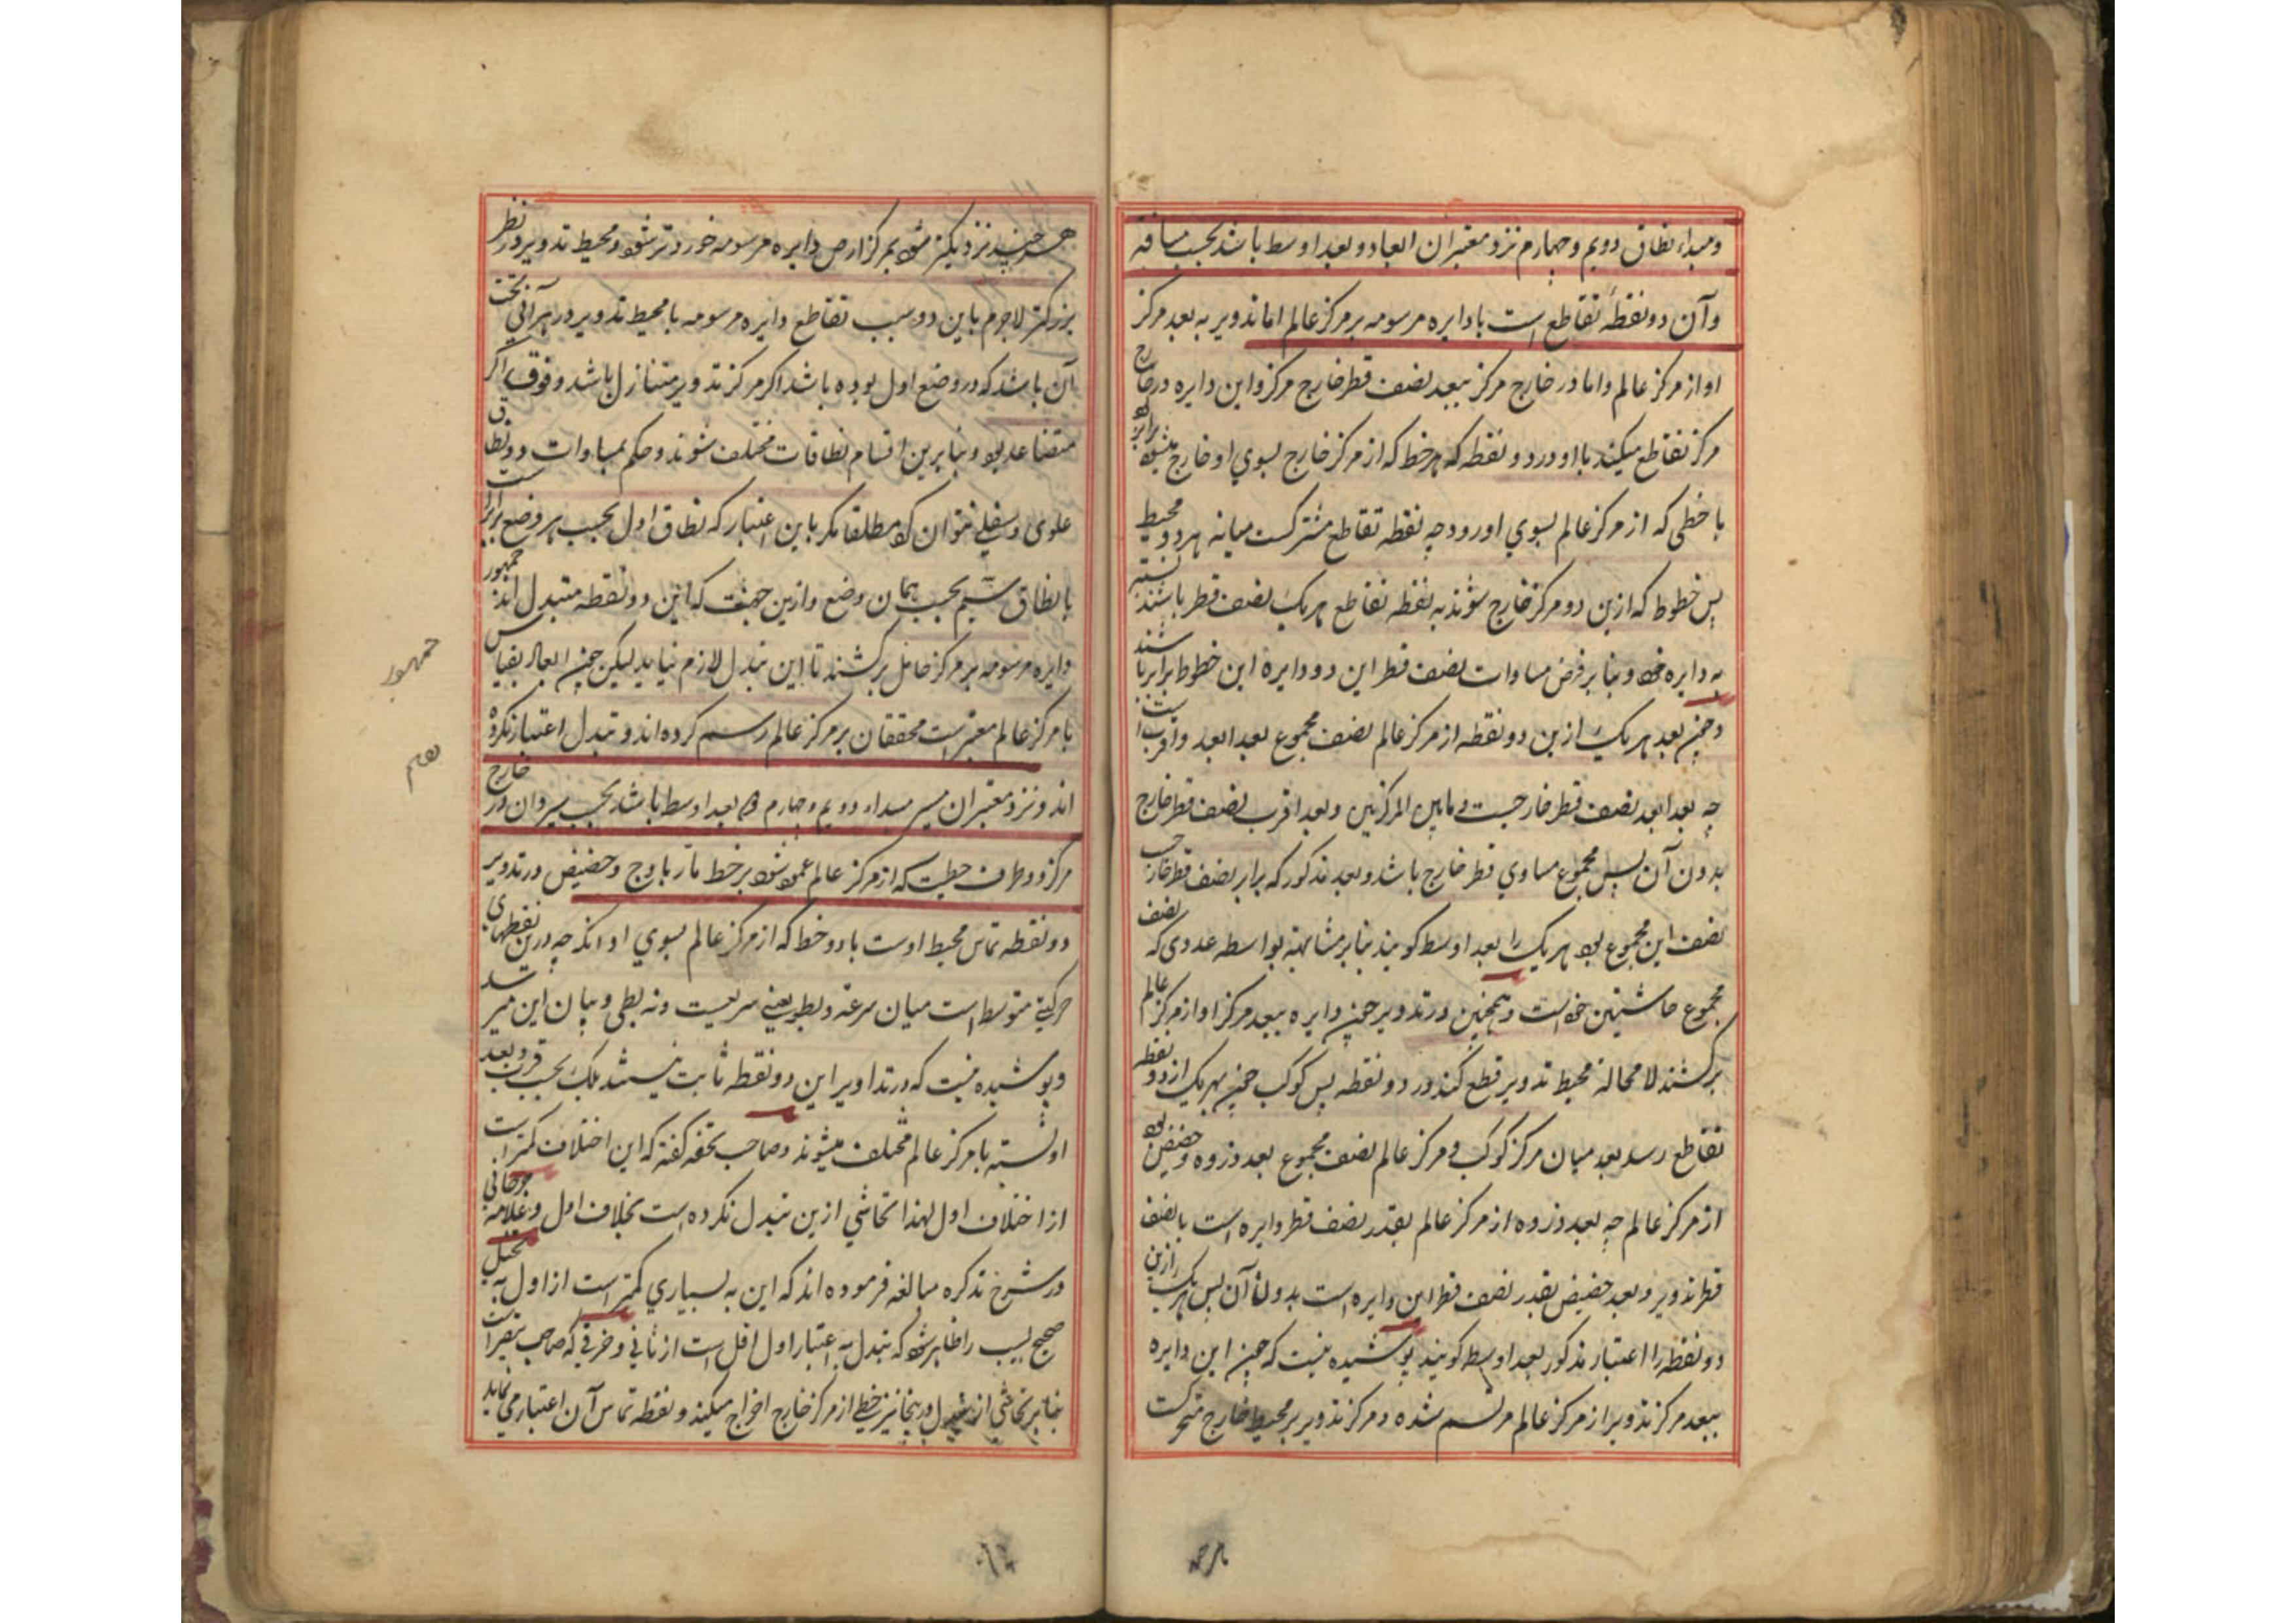 ومبداء نطاق دویم وچهارم نزد معتبران ابعاد دو بعد اوسط باشد بحسب مسافة
وآن دو نقطهٔ تقاطع است با دایره مرسومه بر مرکز عالم اما تدویر به بعد مرکز
او از مرکز عالم واما در خارج مرکز ببعد نصف قطر خارج مرکز واین دایره در خارج
مرکز تقاطع میکند با او در دو نقطه که هر خط که از مرکز خارج بسوي او خارج میشود برابر بود
با خطی که از مرکز عالم بسوي او رود چه نقطه تقاطع مشترکست میانه هر دو محیط
پس خطوط که ازین دو مرکز خارج شوند به نقطه تقاطع هر یک نصف قطر باشند نسبت
به دایره خود وبنا بر فرض مساوات نصف قطر این دو دایره این خطوط برابر باشند
وچنین بعد هر یک ازین دو نقطه از مرکز عالم نصف مجموع بعد ابعد واقرب است
چه بعد ابعد نصف قطر خارجست و مابین المرکزین وبعد اقرب نصف قطر خارج
بدون آن پس مجموع مساوي قطر خارج باشد وبعد مذکور که برابر نصف قطر خارجست
نصف این مجموع بود هر یک را بعد اوسط کویند بنا بر مشابهة بواسطه عددی که نصف
مجموع حاشیتین خود است وهمچنین در تدویر چون دایره ببعد مرکز او از مرکز عالم
برکشند لا محالة محیط تدویر قطع کند در دو نقطه پس کوکب چون بهر یک از دو نقطه
تقاطع رسد بعد میان مرکز کوکب و مرکز عالم نصف مجموع بعد ذروه وحضیض بود
از مرکز عالم چه بعد ذروه از مرکز عالم بقدر نصف قطر دایره است با نصف
قطر تدویر وبعد حضیض بقدر نصف قطر این دایره است بدون آن پس هر یک را ازین
دو نقطه را اعتبار مذکور بعد اوسط کویند پوشیده نیست که چون این دایره
ببعد مرکز تدویر از مرکز عالم مرتسم شده ومرکز تدویر بر محیط خارج متحرکست
هر چند نزدیکتر شود بمرکز ارض دایره مرسومه خوردتر شود ومحیط تدویر در نظر
بزرکتر لاجرم باین دو سبب تقاطع دایره مرسومه با محیط تدویر در هر آنی تحت
آن باشد که در وضع اول بوده باشد اکر مرکز تدویر متنازل باشد وفوق اکر
متصاعد بود وبنا برین اقسام نطاقات مختلف شوند وحکم بمساوات دو نطاق
علوی وسفلی نتوان کرد مطلقا مکر باین اعتبار که نطاق اول بحسب هر وضع برابر است
با نطاق سیم بحسب همان وضع وازین جهت که این دو نقطه متبدل اند جمهور
دایره مرسومه بر مرکز حامل برکشند تا این تبدل لازم نیاید لیکن چون ابعاد بقیاس
با مرکز عالم معتبر است محققان بر مرکز عالم رسم کرده اند وتبدل اعتبار نکرده
اند ونزد معتبران مسیر مبداء دویم وچهارم دو بعد اوسط باشد بحسب مسیر وآن در خارج
مرکز دو طرف خطیست که از مرکز عالم عمود شود بر خط مار باوج وحضیض در تدویر
دو نقطه تماس محیط اوست با دو خط که از مرکز عالم بسوي او آید چه درین نقطهای
حرکتی متوسط است میان سرعة وبطو یعنی نه سریعست ونه بطی وبیان این میرسد
وپوشیده نیست که در تداویر این دو نقطه ثابت نیستند بلک بحسب قرب وبعد
او نسبت با مرکز عالم مختلف میشوند وصاحب تحفه کفته که این اختلاف کمتر است
از اختلاف اول لهذا تحاشي ازین تبدل نکرده است بخلاف اول وعلامه جرجانی
در شرح تذکره مبالغه فرموده اند که این به بسیاري کمتر است از اول به تخیل
صحیح لبیب را ظاهر شود که تبدل به اعتبار اول اقل است از ثاني وخرقی که صاحب تبصره است
بنا بر تحاشي از تبدل در ینجا نیز خطی از مرکز خارج اخراج میکند ونقطه تماس آن اعتبار می نماید
جمهور